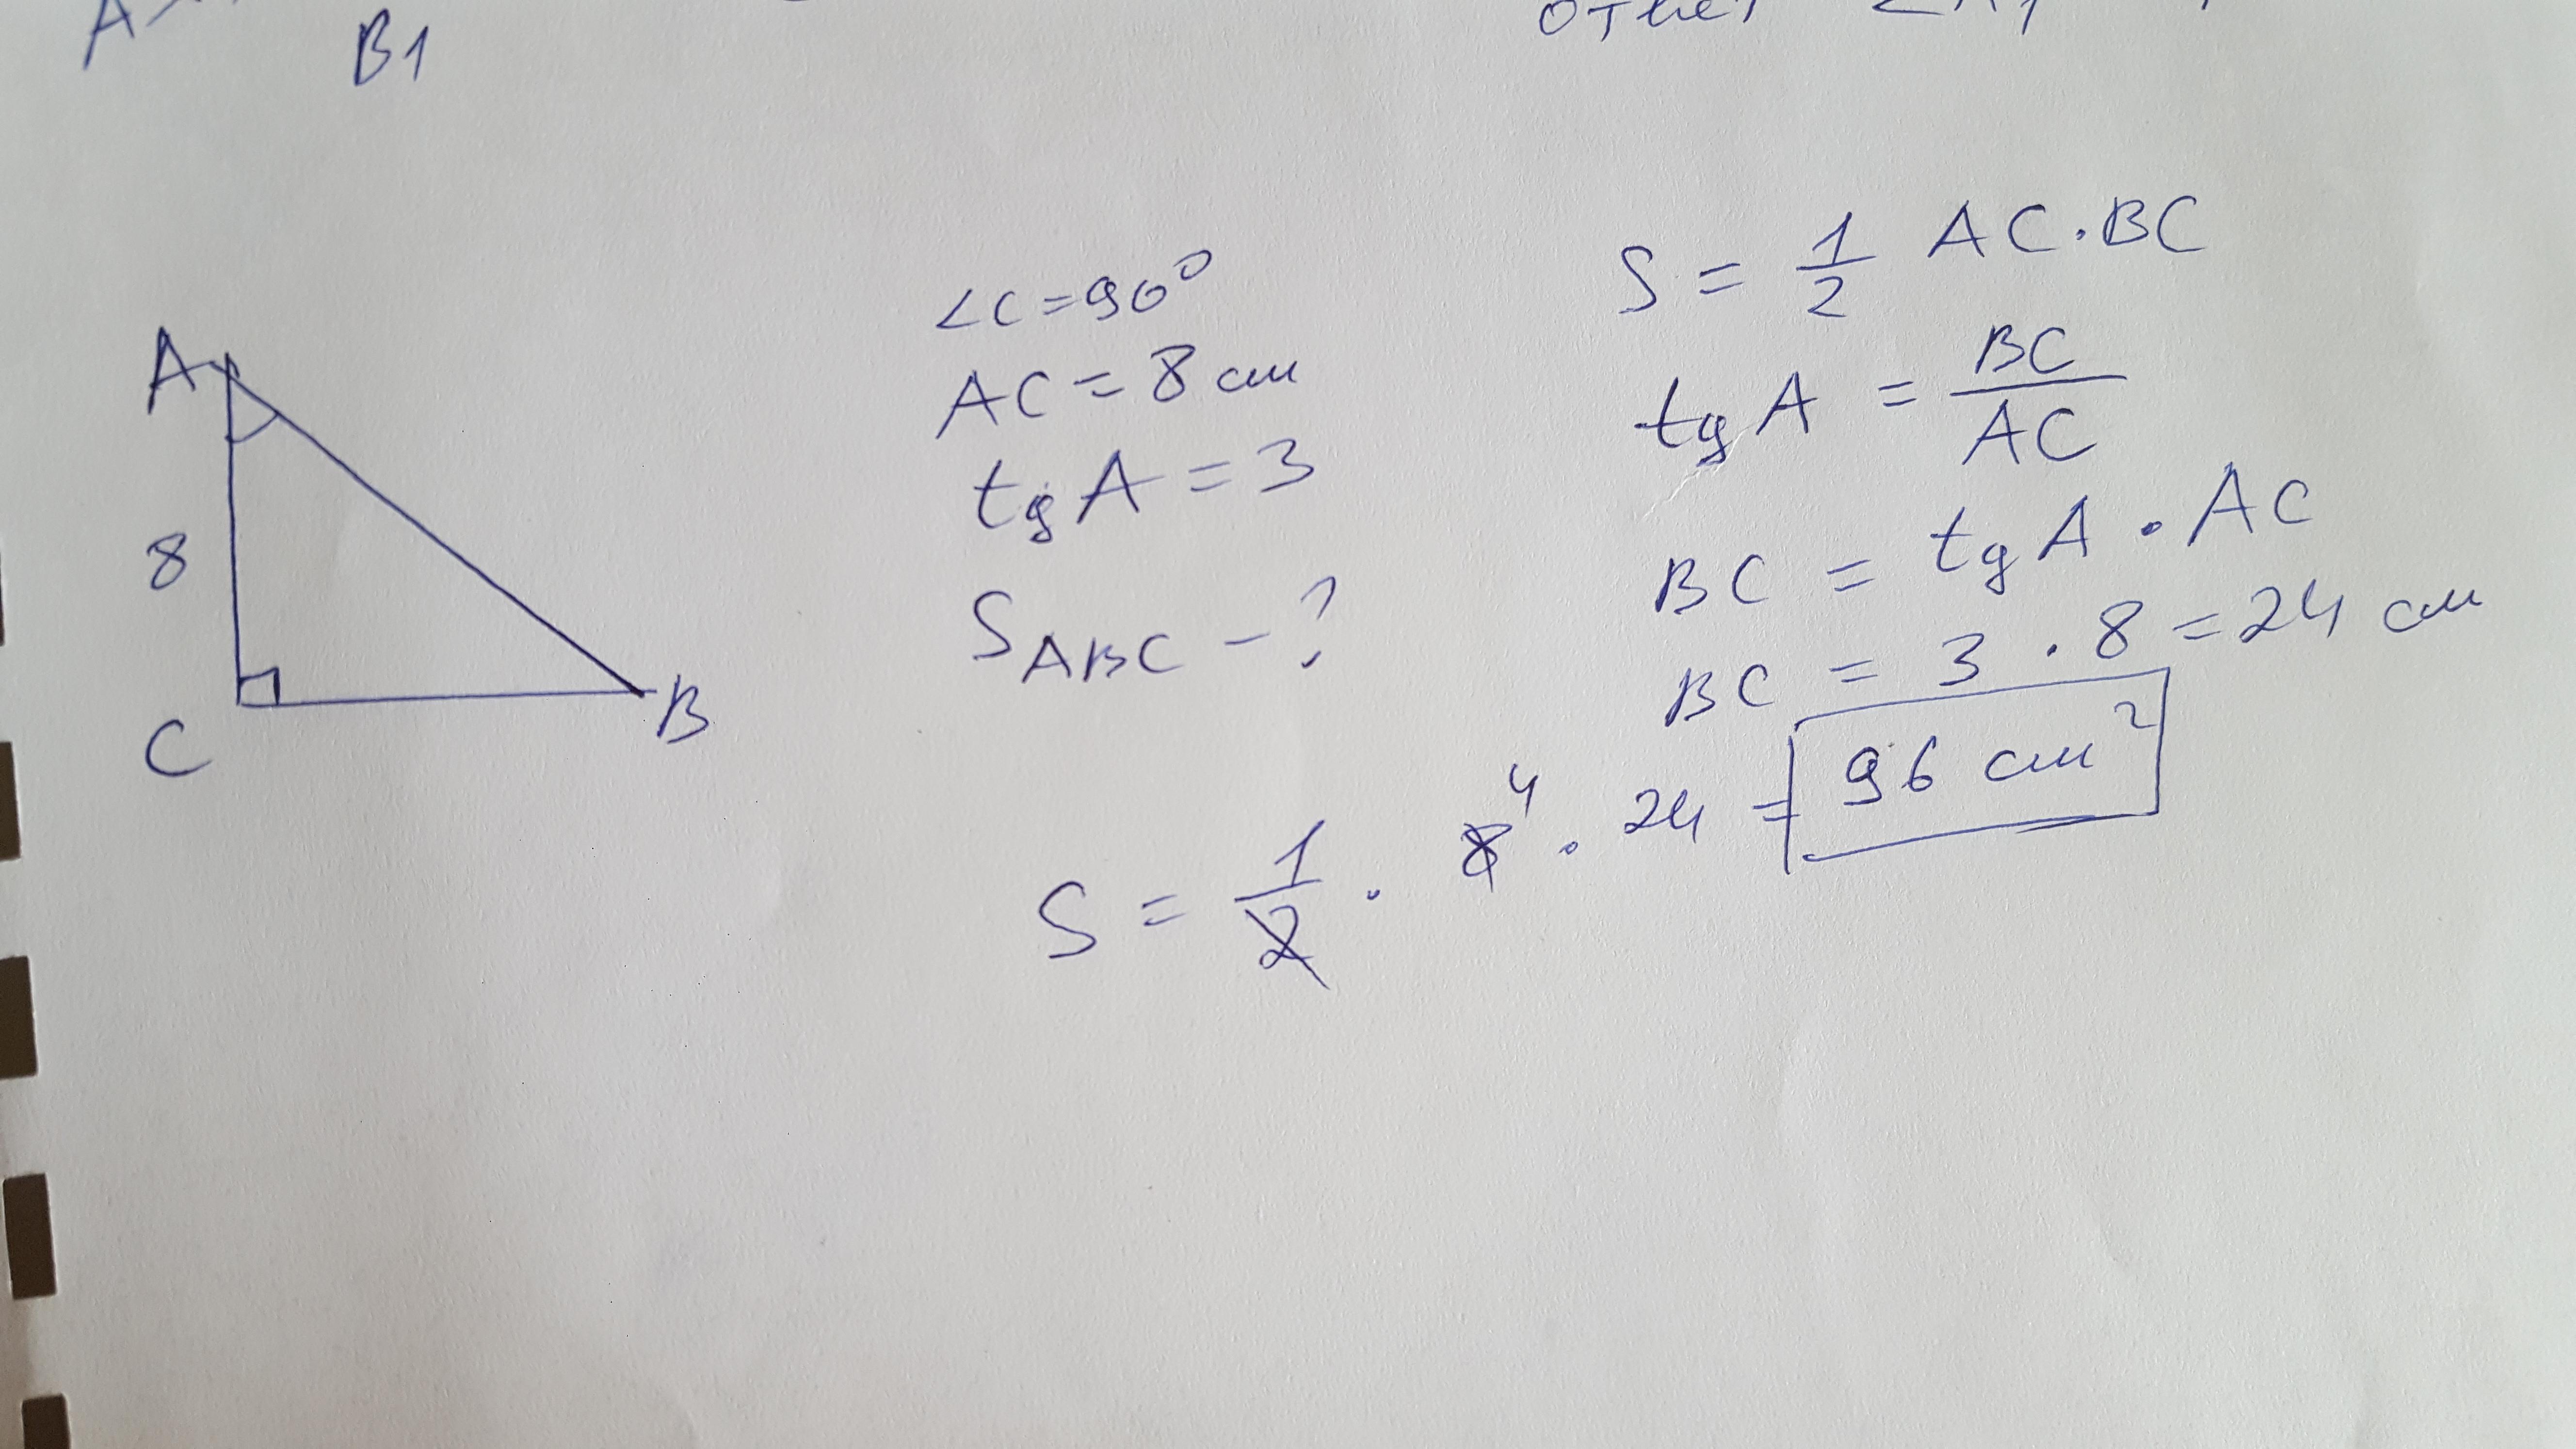 B1
A
8
C
B
∠C=90°
AC = 8 см
tg A = 3
S_ABC - ?
S = 1/2 AC · BC
tg A = BC/AC
BC = tg A · AC
BC = 3 · 8 = 24 см
S = 1/2 · 8 4 · 24 = 96 см²